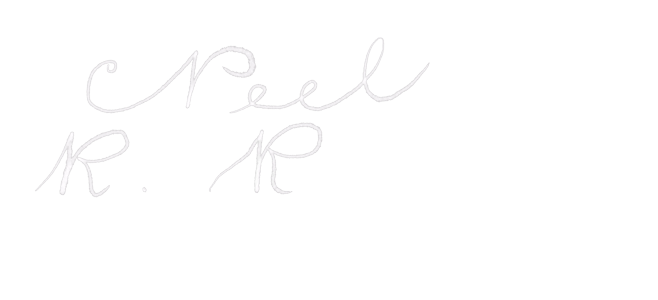 Peel
R. R